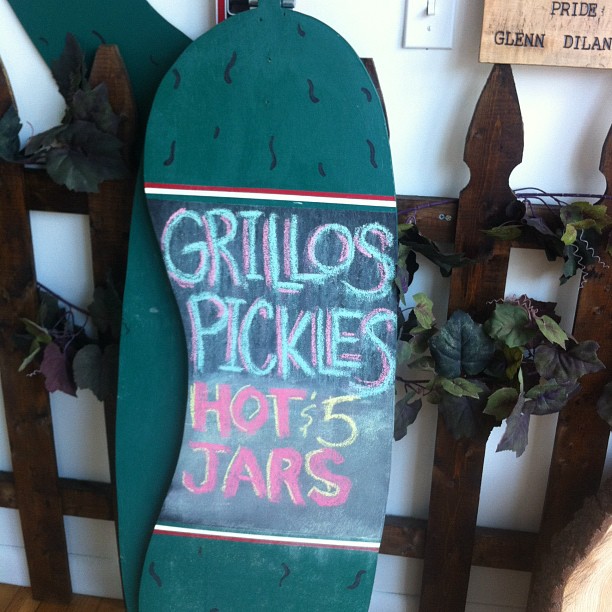 PRIDE
GLENN DILAN
GRILLOS
PICKLES
HOT $5
JARS